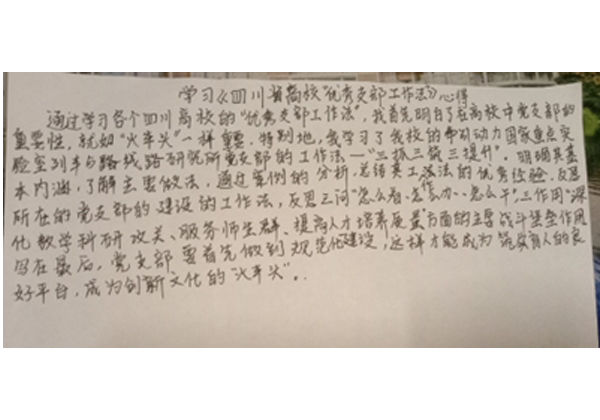 学习《四川省高校"优秀支部工作法"》心得
通过学习各个四川高校的"优秀支部工作法",我首先明白了在高校中党支部的
重要性,就如"火车头"一样重要。特别地,我学习了我校的牵引动力国家重点实
验室列车与线路研究所党支部的工作法—"三抓三筑三提升"。明确其基
本内涵,了解主要做法,通过案例的分析,总结其工作法的优秀经验,反思
所在的党支部的建设的工作法,反思三问"怎么看、怎么办、怎么干"三作用"深
化教学科研攻关、服务师生群、提高人才培养质量方面的主要战斗堡垒作用
写在最后,党支部要首先做到规范化建设,这样才能成为 育人的良
好平台,成为创新文化的"火车头"。